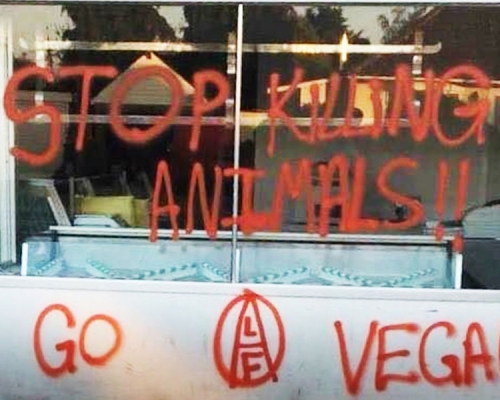 STOP KILLING
ANIMALS!!
GO ALF VEGA